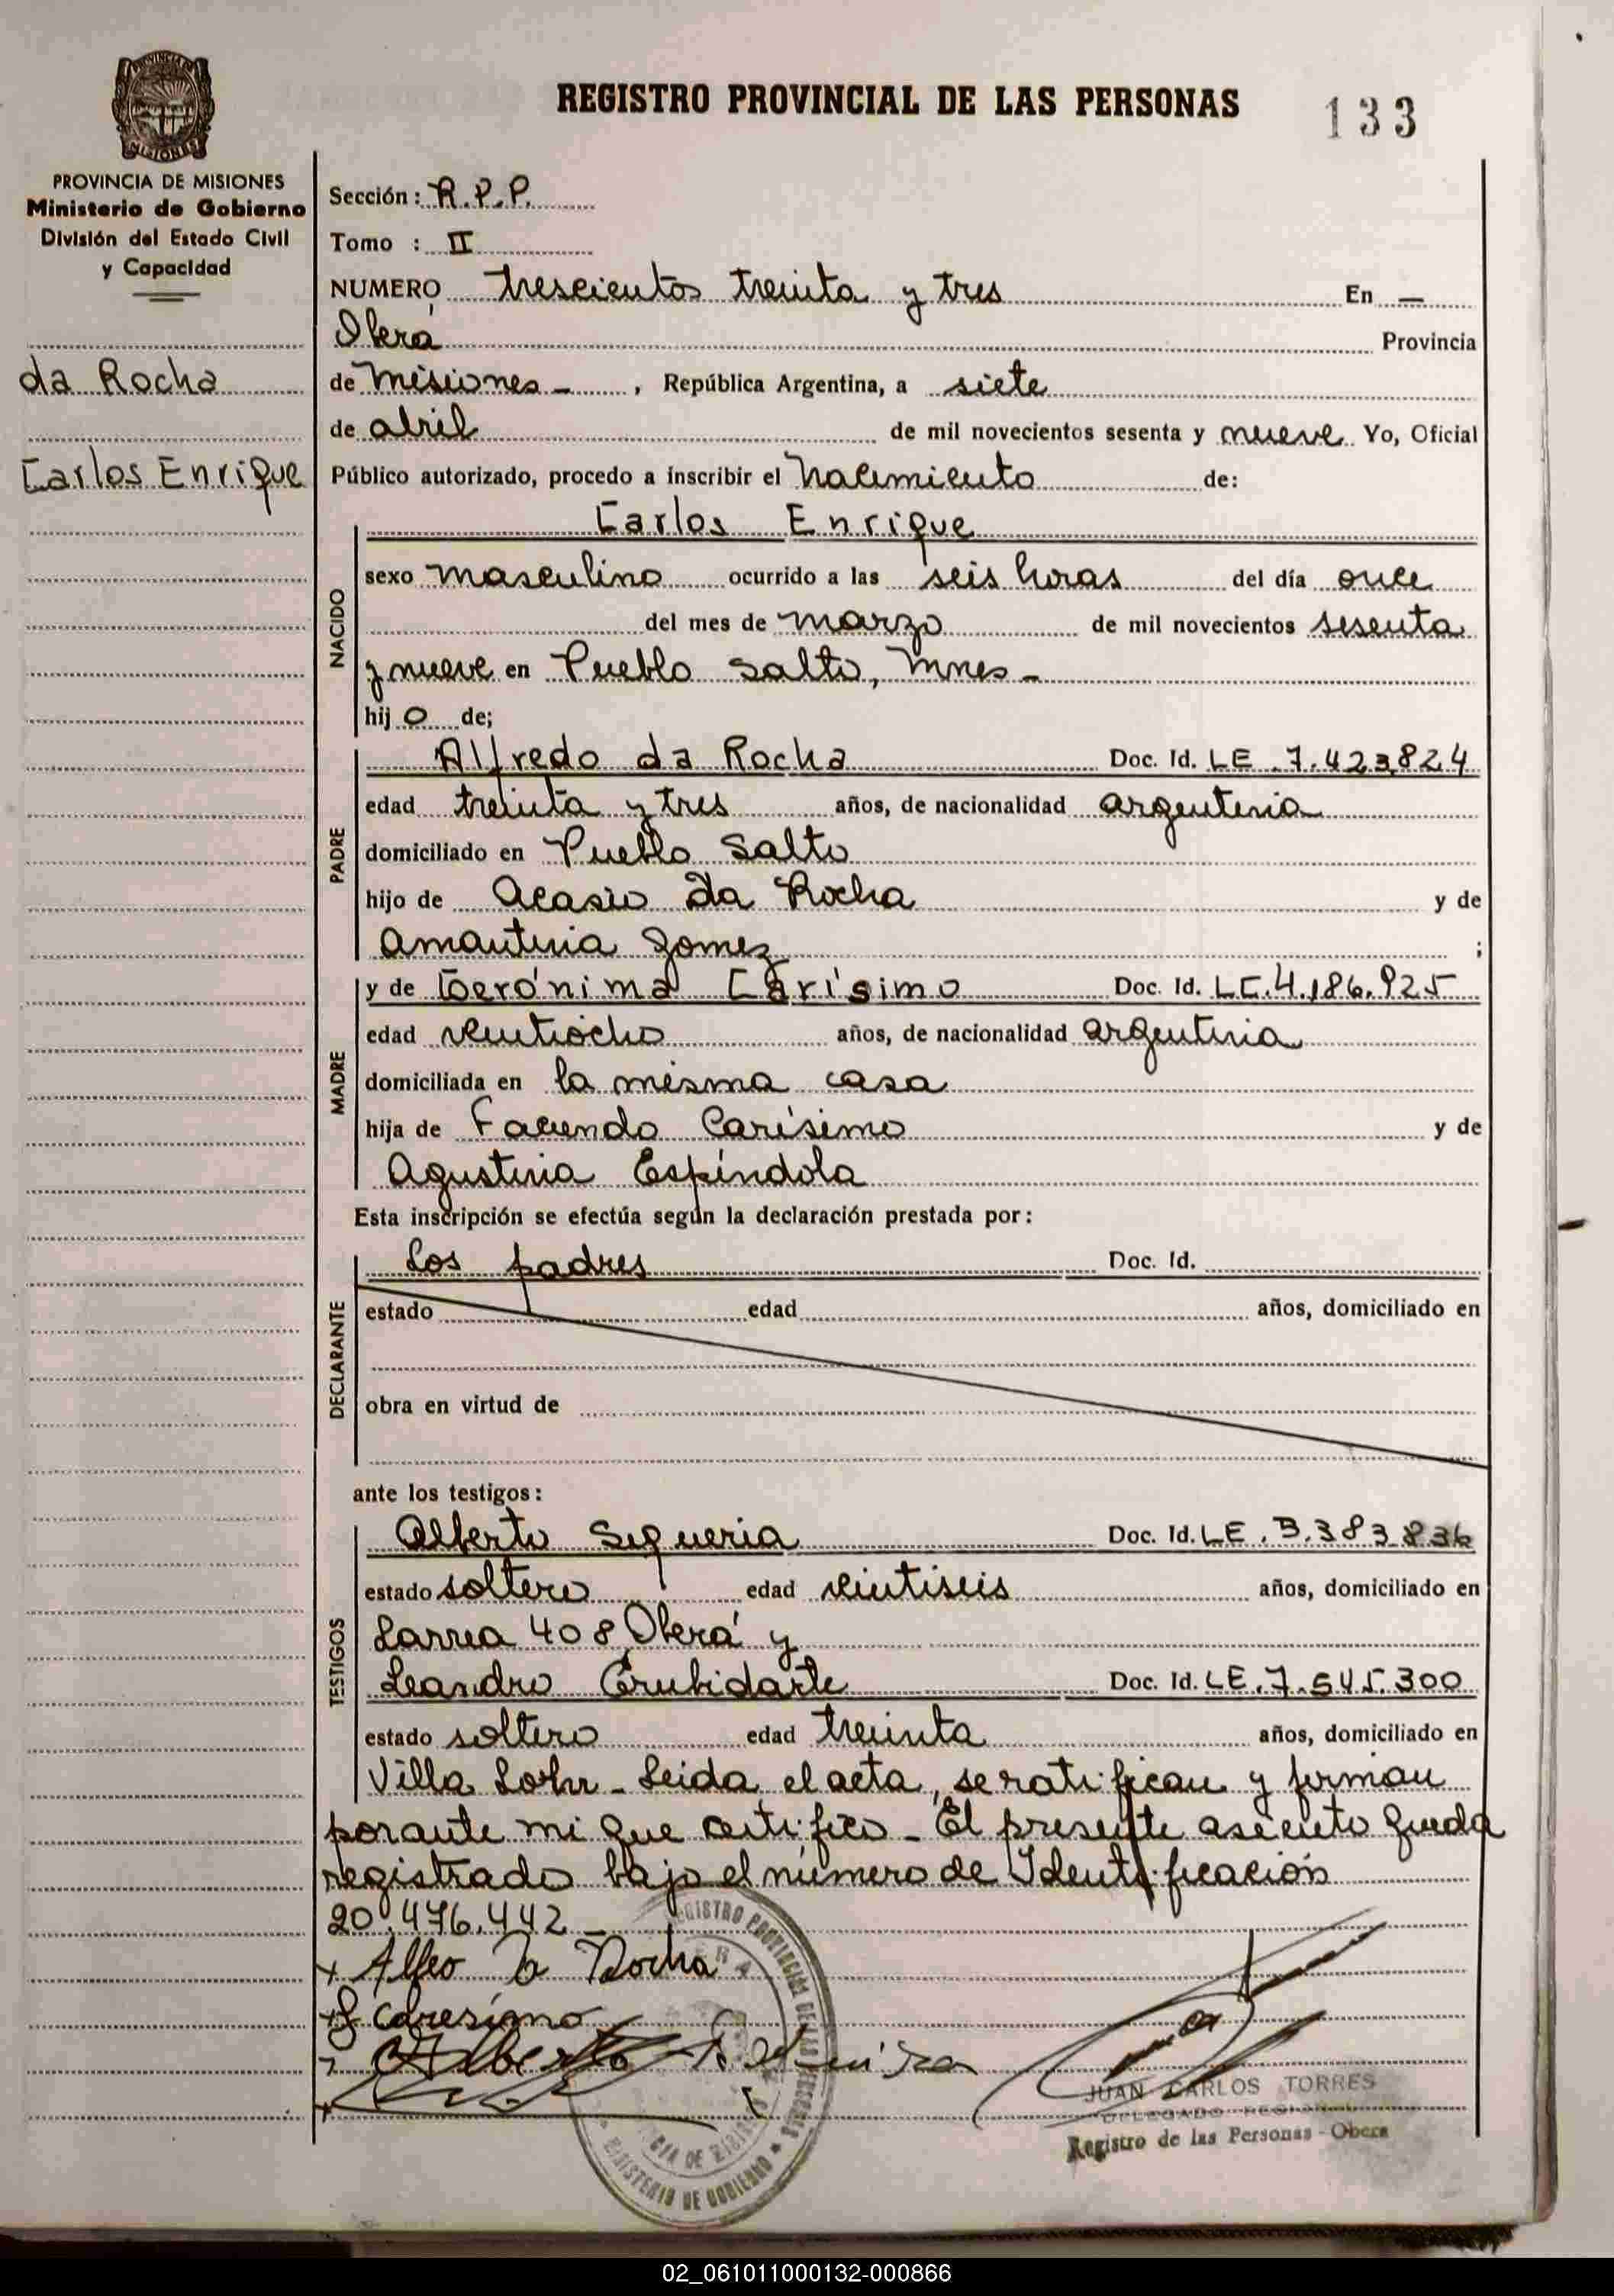 REGISTRO PROVINCIAL DE LAS PERSONAS
133
PROVINCIA DE MISIONES
Ministerio de Gobierno
División del Estado Civil
y Capacidad
da Rocha
Carlos Enrique
Sección: R.P.P.
Tomo : II
NUMERO trescientos treinta y tres En —
Oberá Provincia
de Misiones - , República Argentina, a siete
de abril de mil novecientos sesenta y nueve Yo, Oficial
Público autorizado, procedo a inscribir el nacimiento de:
Carlos Enrique
NACIDO
sexo masculino ocurrido a las seis horas del día once
del mes de marzo de mil novecientos sesenta
y nueve en Pueblo Salto, Mnes -
hij o de;
PADRE
Alfredo da Rocha Doc. Id. LE .7.423.824
edad treinta y tres años, de nacionalidad argentina
domiciliado en Pueblo Salto
hijo de Acasio Da Rocha y de
Amantina Gomez ;
MADRE
y de Gerónima Carísimo Doc. Id. LC.4.186.925
edad veintiocho años, de nacionalidad argentina
domiciliada en la misma casa
hija de Facundo Carísimo y de
Agustina Espíndola
Esta inscripción se efectúa según la declaración prestada por:
DECLARANTE
Los padres Doc. Id.
estado edad años, domiciliado en
obra en virtud de
ante los testigos:
TESTIGOS
Alberto Siqueria Doc. Id. LE .3.383.836
estado soltero edad veintiseis años, domiciliado en
Larrea 408 Oberá y
Leandro Doc. Id. LE.7.545.300
estado soltero edad treinta años, domiciliado en
Villa Lohr - Leida el acta, se ratifican y firman
porante mi que certifico - El presente asiento queda
registrado bajo el número de Identificación
20.476.442 -
Alfeo Da Rocha
G Caresimo
Alberto
REGISTRO PROVINCIAL DE LAS PERSONAS
MINISTERIO DE GOBIERNO
JUAN CARLOS TORRES
DELEGADO REGIONAL
Registro de las Personas - Obera
02_061011000132-000866